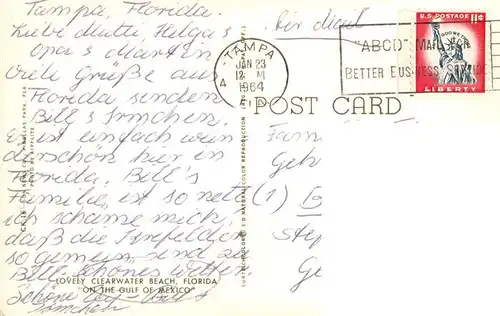 Tampa, Florida.
Liebe Mutti, Helga &
Opa & Martin
viele Grüße aus
Florida senden
Bill & Irmchen.
Es ist einfach wun
derschön hier in
Florida. Bill's
Familie, ist so nett
ich schäme mich,
daß die
so gemein, sind zu
Bill. Schönes Wetter.
Schöne Bill &
Irmchen
Air Mail
TAMPA
JAN 23
12 M
1964
"ABCD" MAIL
BETTER BUSINESS
U.S. POSTAGE 11¢
LIBERTY
POST CARD
Fam
Geh
(1)
Step
Ge
LOVELY CLEARWATER BEACH, FLORIDA
"ON THE GULF OF MEXICO"